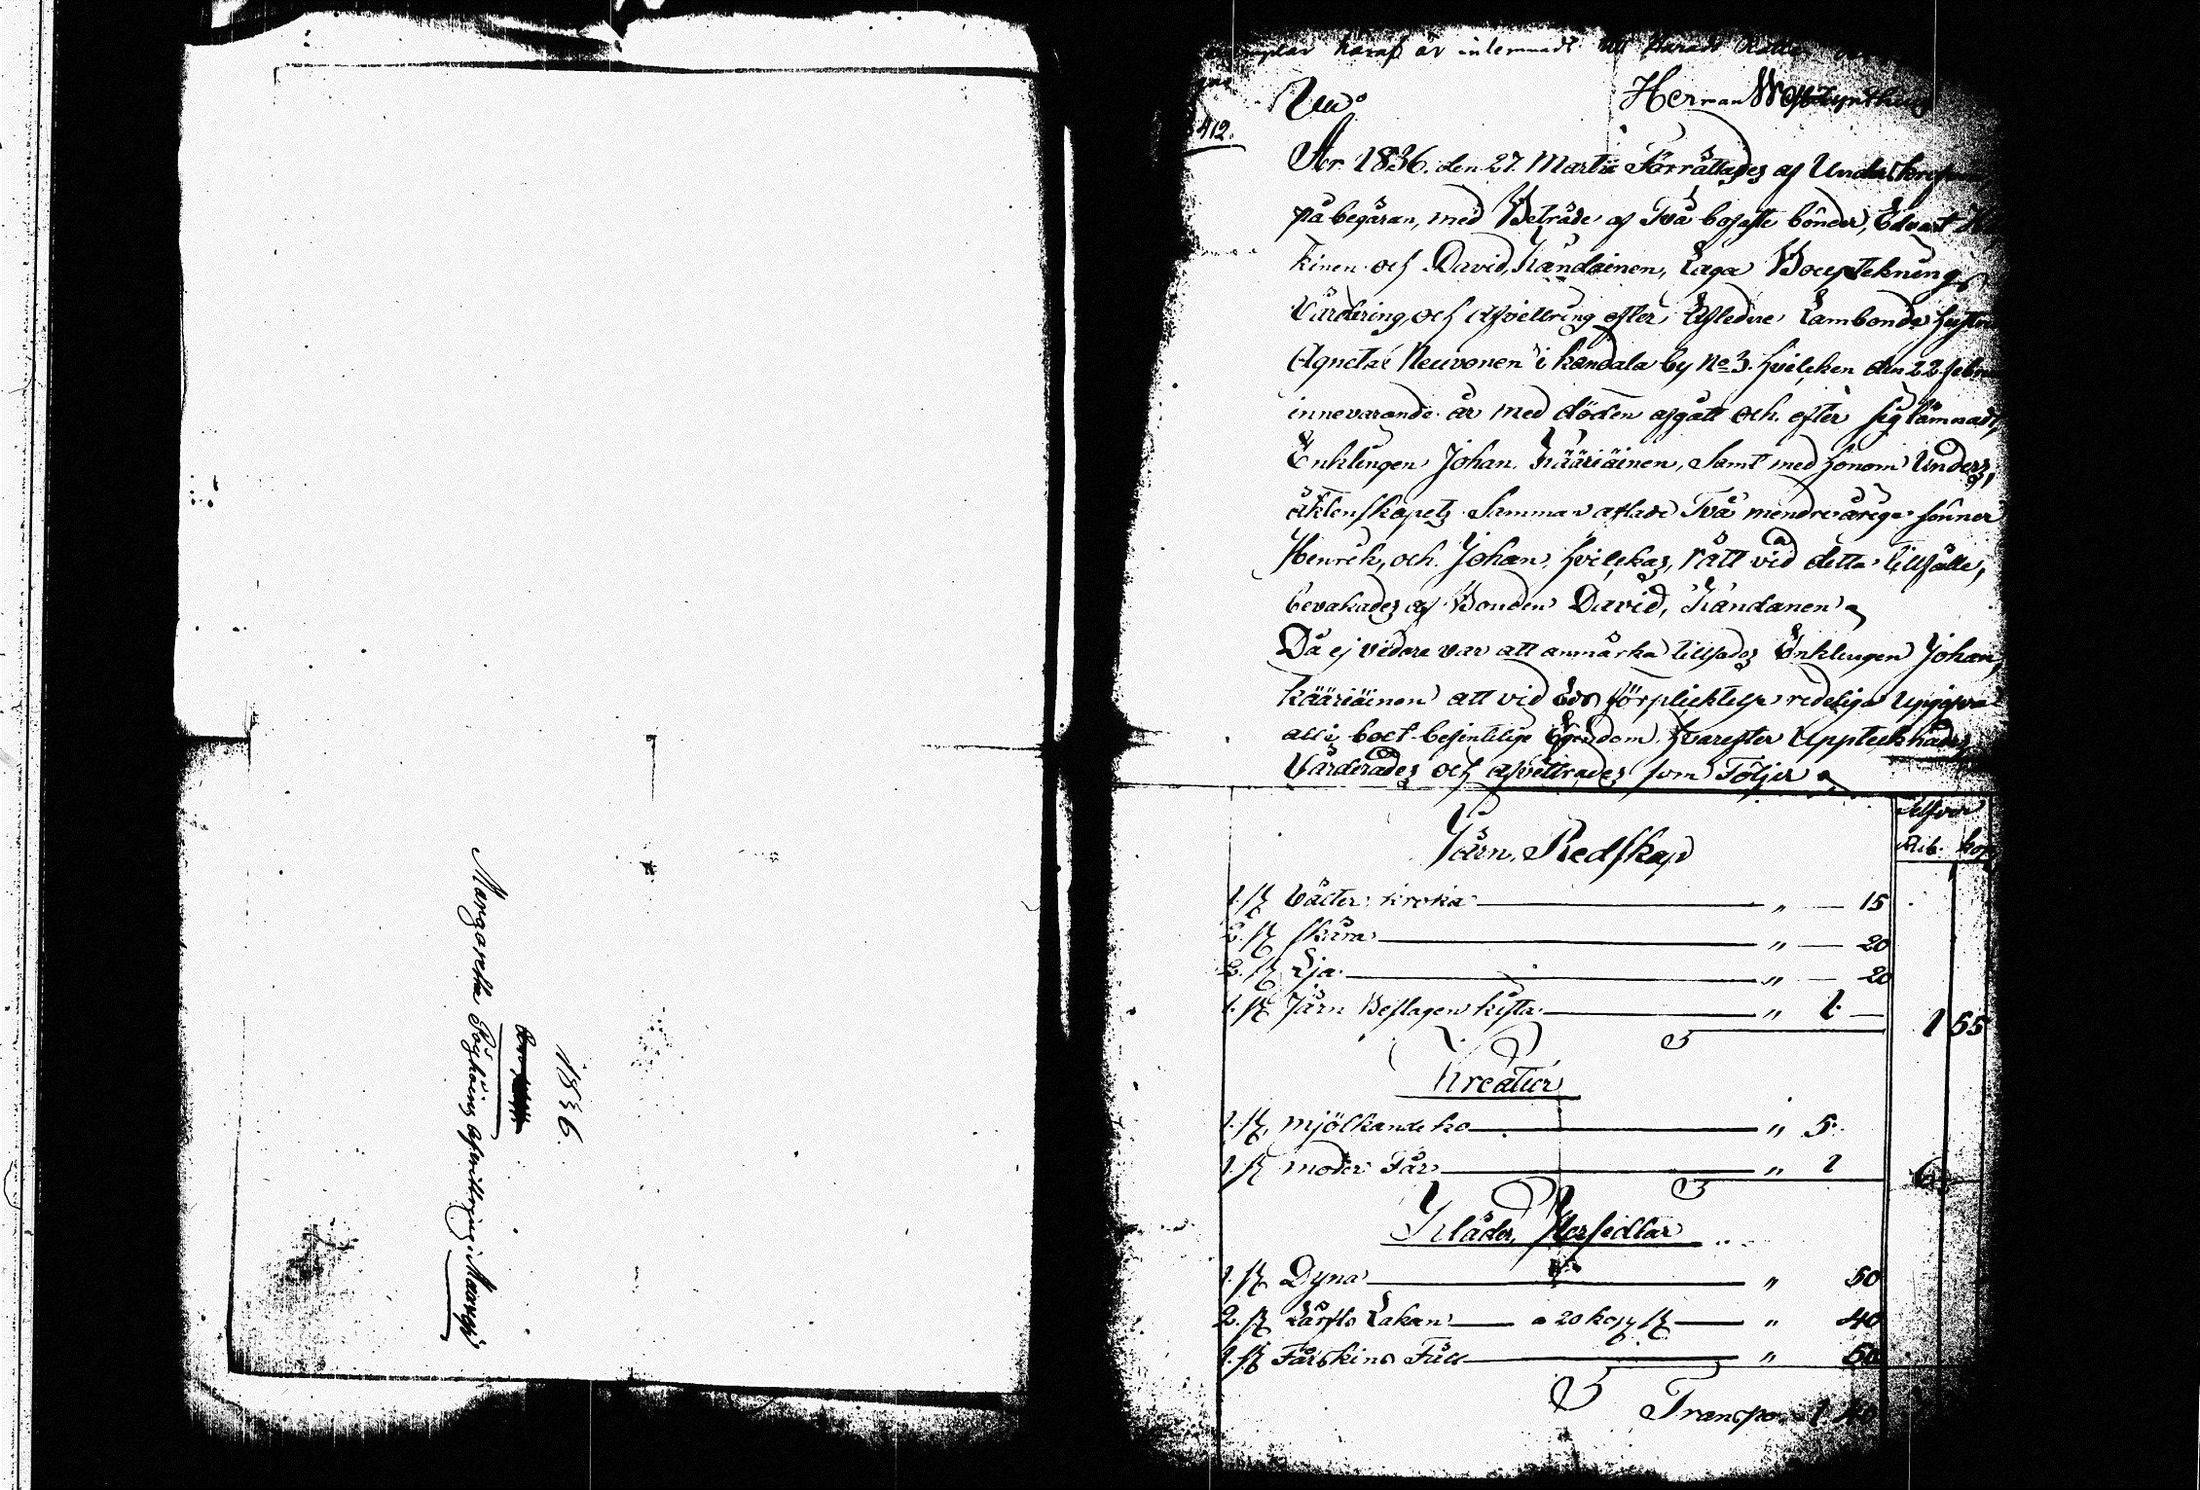 Margaretha Pöyhöins afvittring i Maaning
1836.
haraf är inlemnadt till Härads
Herman
412.
År 1836. den 27 Martii Förrättades af Underskrefven
på begäran, med Beträde af Två bofaste bönder, Edvart
kinen och David Kandainen, Laga Bouptekning
Värdering, och afvittring efter Afledne Lambonde hustru
Agneta Neuvonen i kandala by No 3. hvilcken den 22 febru
innevarande år med döden afgått och efter sig lämnadt
Enklingen Johan Kääriäinen, Samt med honom Under
äktenskapets Samma aflade Två mendreårige sönner
Henrik, och Johan, hvilckas, rätt vid detta tillfälle,
bevakades af Bonden David, Kandanen
Då ej videre var att anmärka tillsades Enklingen Johan
Kääriäinen att vid Eds förplicktelse redeliga Uppgifva
all i boet befintelige Egendom hvarefter Upptecknades
Värderades och afvittrades som Följer
Silfver
Rub. kop
Järn Redskap
1. st Välter kroka " 15
2. st skära " 20
2. st Lja " 20
1. st Järn Beslagen kista " 1. —
1 55
Kreatur
1. st mjölkande ko " 5.
1 st moder Får " 1
6
Kläder, Persedlar
1. st Dyna " 50
2. st Lärfts Lakan a 20 kop st " 40
1. st Fårskins Fäll " 50
Transpo 1 40